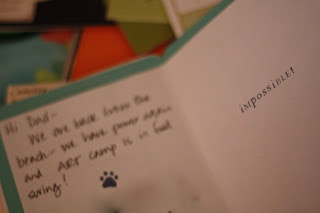 Hi Dad-
We are back from the
beach- we have power again
and ART camp is in full
swing!
iMPOSSiBLE!